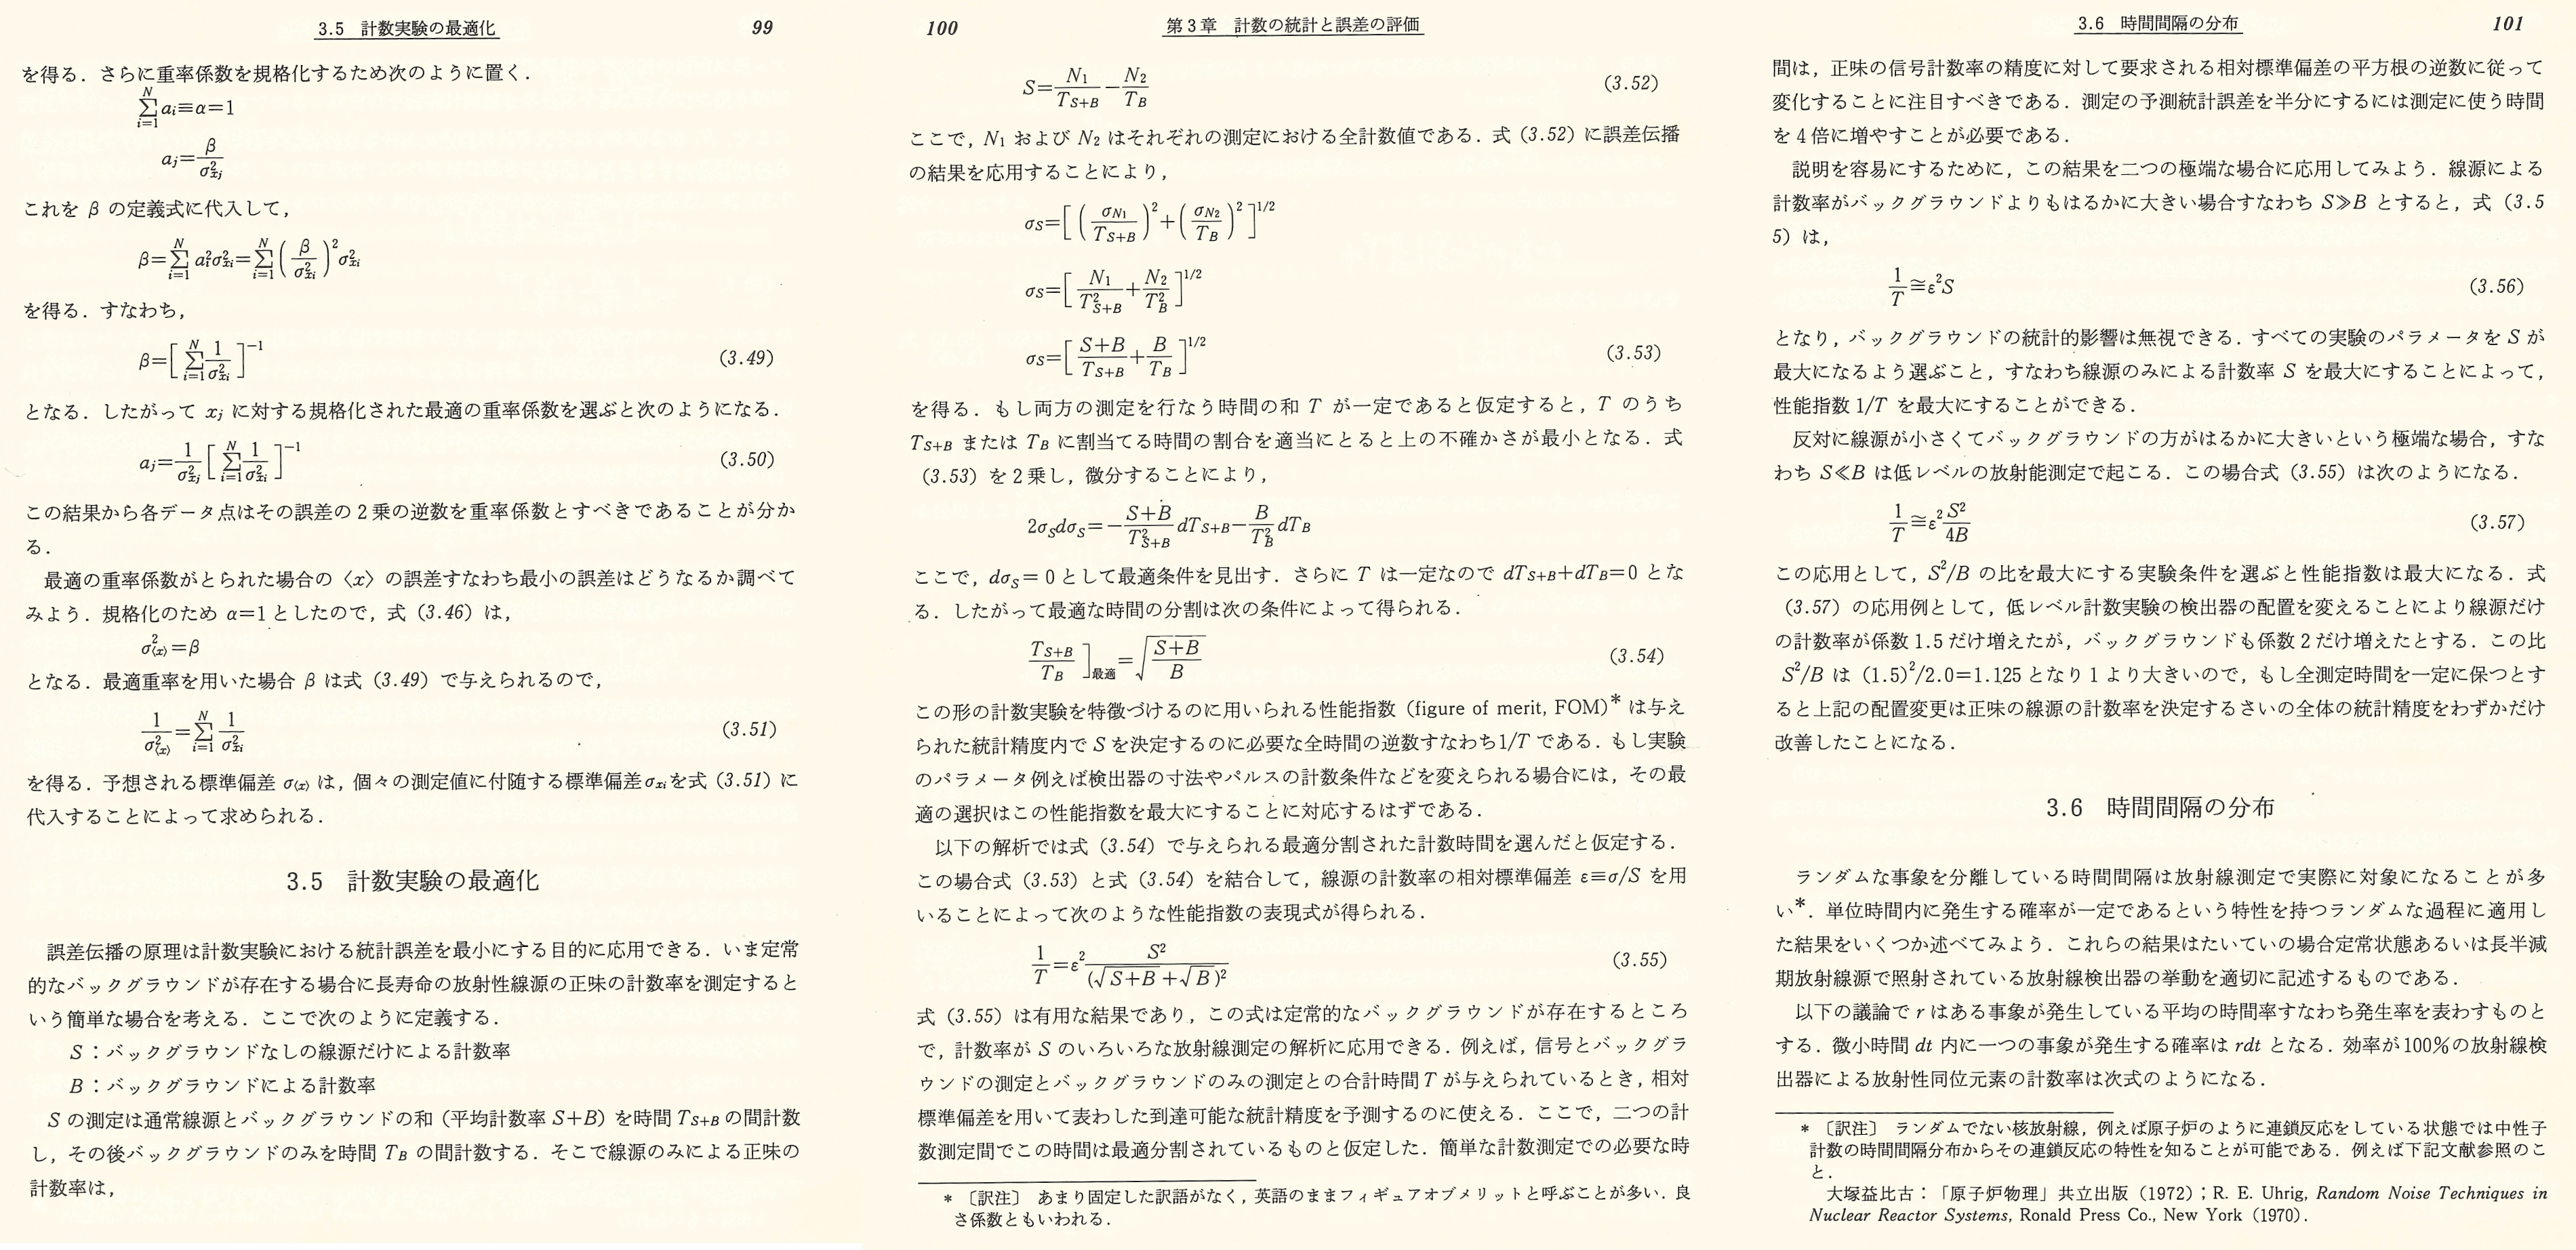 3.5 計数実験の最適化 99
を得る．さらに重率係数を規格化するため次のように置く．
\sum_{i=1}^{N} a_i≡α=1
a_j=\frac{β}{σ_{x_j}^2}
これを β の定義式に代入して，
β=\sum_{i=1}^{N} a_i^2σ_{x_i}^2=\sum_{i=1}^{N}(\frac{β}{σ_{x_i}^2})^2σ_{x_i}^2
を得る．すなわち，
β=[\sum_{i=1}^{N}\frac{1}{σ_{x_i}^2}]^{-1} (3.49)
となる．したがって x_j に対する規格化された最適の重率係数を選ぶと次のようになる．
a_j=\frac{1}{σ_{x_j}^2}[\sum_{i=1}^{N}\frac{1}{σ_{x_i}^2}]^{-1} (3.50)
この結果から各データ点はその誤差の２乗の逆数を重率係数とすべきであることが分か
る．
最適の重率係数がとられた場合の〈x〉の誤差すなわち最小の誤差はどうなるか調べて
みよう．規格化のため α=1 としたので，式 (3.46) は，
σ_{〈x〉}^2=β
となる．最適重率を用いた場合 β は式 (3.49) で与えられるので，
\frac{1}{σ_{〈x〉}^2}=\sum_{i=1}^{N}\frac{1}{σ_{x_i}^2} (3.51)
を得る．予想される標準偏差 σ_{〈x〉} は，個々の測定値に付随する標準偏差σ_{xi}を式 (3.51) に
代入することによって求められる．
3.5 計数実験の最適化
誤差伝播の原理は計数実験における統計誤差を最小にする目的に応用できる．いま定常
的なバックグラウンドが存在する場合に長寿命の放射性線源の正味の計数率を測定すると
いう簡単な場合を考える．ここで次のように定義する．
S：バックグラウンドなしの線源だけによる計数率
B：バックグラウンドによる計数率
S の測定は通常線源とバックグラウンドの和（平均計数率 S+B）を時間 T_{S+B} の間計数
し，その後バックグラウンドのみを時間 T_B の間計数する．そこで線源のみによる正味の
計数率は，
100 第３章 計数の統計と誤差の評価
S=\frac{N_1}{T_{S+B}}-\frac{N_2}{T_B} (3.52)
ここで，N_1 および N_2 はそれぞれの測定における全計数値である．式 (3.52) に誤差伝播
の結果を応用することにより，
σ_S=[(\frac{σ_{N_1}}{T_{S+B}})^2+(\frac{σ_{N_2}}{T_B})^2]^{1/2}
σ_S=[\frac{N_1}{T_{S+B}^2}+\frac{N_2}{T_B^2}]^{1/2}
σ_S=[\frac{S+B}{T_{S+B}}+\frac{B}{T_B}]^{1/2} (3.53)
を得る．もし両方の測定を行なう時間の和 T が一定であると仮定すると，T のうち
T_{S+B} または T_B に割当てる時間の割合を適当にとると上の不確かさが最小となる．式
(3.53) を２乗し，微分することにより，
2σ_Sdσ_S=-\frac{S+B}{T_{S+B}^2}dT_{S+B}-\frac{B}{T_B^2}dT_B
ここで，dσ_S=0 として最適条件を見出す．さらに T は一定なので dT_{S+B}+dT_B=0 とな
る．したがって最適な時間の分割は次の条件によって得られる．
\frac{T_{S+B}}{T_B}]_{最適}=\sqrt{\frac{S+B}{B}} (3.54)
この形の計数実験を特徴づけるのに用いられる性能指数 (figure of merit, FOM)* は与え
られた統計精度内で S を決定するのに必要な全時間の逆数すなわち1/T である．もし実験
のパラメータ例えば検出器の寸法やパルスの計数条件などを変えられる場合には，その最
適の選択はこの性能指数を最大にすることに対応するはずである．
以下の解析では式 (3.54) で与えられる最適分割された計数時間を選んだと仮定する．
この場合式 (3.53) と式 (3.54) を結合して，線源の計数率の相対標準偏差 ε≡σ/S を用
いることによって次のような性能指数の表現式が得られる．
\frac{1}{T}=ε^2\frac{S^2}{(\sqrt{S+B}+\sqrt{B})^2} (3.55)
式 (3.55) は有用な結果であり，この式は定常的なバックグラウンドが存在するところ
で，計数率が S のいろいろな放射線測定の解析に応用できる．例えば，信号とバックグラ
ウンドの測定とバックグラウンドのみの測定との合計時間 T が与えられているとき，相対
標準偏差を用いて表わした到達可能な統計精度を予測するのに使える．ここで，二つの計
数測定間でこの時間は最適分割されているものと仮定した．簡単な計数測定での必要な時
* 〔訳注〕 あまり固定した訳語がなく，英語のままフィギュアオブメリットと呼ぶことが多い．良
さ係数ともいわれる．
3.6 時間間隔の分布 101
間は，正味の信号計数率の精度に対して要求される相対標準偏差の平方根の逆数に従って
変化することに注目すべきである．測定の予測統計誤差を半分にするには測定に使う時間
を４倍に増やすことが必要である．
説明を容易にするために，この結果を二つの極端な場合に応用してみよう．線源による
計数率がバックグラウンドよりもはるかに大きい場合すなわち S≫B とすると，式 (3.5
5) は，
\frac{1}{T}≅ε^2S (3.56)
となり，バックグラウンドの統計的影響は無視できる．すべての実験のパラメータを S が
最大になるよう選ぶこと，すなわち線源のみによる計数率 S を最大にすることによって，
性能指数 1/T を最大にすることができる．
反対に線源が小さくてバックグラウンドの方がはるかに大きいという極端な場合，すな
わち S≪B は低レベルの放射能測定で起こる．この場合式 (3.55) は次のようになる．
\frac{1}{T}≅ε^2\frac{S^2}{4B} (3.57)
この応用として，S^2/B の比を最大にする実験条件を選ぶと性能指数は最大になる．式
(3.57) の応用例として，低レベル計数実験の検出器の配置を変えることにより線源だけ
の計数率が係数 1.5 だけ増えたが，バックグラウンドも係数２だけ増えたとする．この比
S^2/B は (1.5)^2/2.0=1.125 となり１より大きいので，もし全測定時間を一定に保つとす
ると上記の配置変更は正味の線源の計数率を決定するさいの全体の統計精度をわずかだけ
改善したことになる．
3.6 時間間隔の分布
ランダムな事象を分離している時間間隔は放射線測定で実際に対象になることが多
い*．単位時間内に発生する確率が一定であるという特性を持つランダムな過程に適用し
た結果をいくつか述べてみよう．これらの結果はたいていの場合定常状態あるいは長半減
期放射線源で照射されている放射線検出器の挙動を適切に記述するものである．
以下の議論で r はある事象が発生している平均の時間率すなわち発生率を表わすものと
する．微小時間 dt 内に一つの事象が発生する確率は rdt となる．効率が100％の放射線検
出器による放射性同位元素の計数率は次式のようになる．
* 〔訳注〕 ランダムでない核放射線，例えば原子炉のように連鎖反応をしている状態では中性子
計数の時間間隔分布からその連鎖反応の特性を知ることが可能である．例えば下記文献参照のこ
と．
大塚益比古：「原子炉物理」共立出版 (1972)；R. E. Uhrig, Random Noise Techniques in
Nuclear Reactor Systems, Ronald Press Co., New York (1970)．